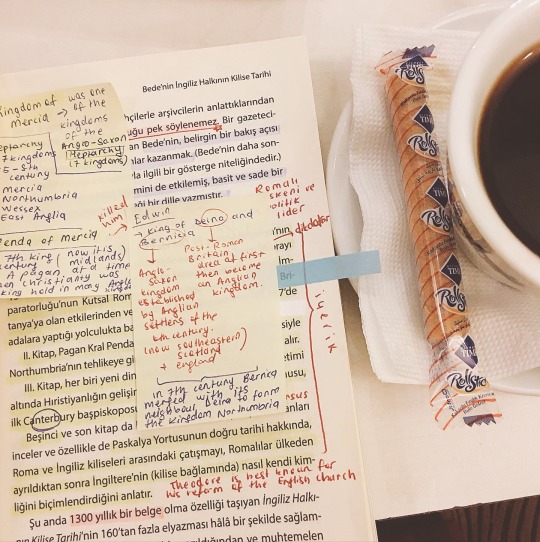 Bede'nin İngiliz Halkının Kilise Tarihi
Kingdom of
Mercia → was one
of the
kingdoms
of the
Anglo-Saxon
Heptarchy
(7 kingdoms)
Heptarchy
7 kingdoms
5-8th
century
Mercia
Northumbria
Wessex
East Anglia
killed
him
Penda of Mercia
7th king (now it is
century midlands)
A pagan, at a time
when Christianity was
taking hold in many
çilerle arşivcilerin anlattıklarından
uğu pek söylenemez. Bir gazeteci-
an Bede'nin, belirgin bir bakış açısı
lar kazanmak. (Bede'nin daha son-
la ilgili bir gösterge niteliğindedir.)
mini de etkilemiş, basit ve sade bir
ği bir dille yazmıştır.
Romalı
askeri ve
politik
lider
diktatör
Edwin
→ king of Deira and
Bernicia
Anglo-
Saxon
kingdom
established
by Anglian
settlers of the
6th century.
(now southeastern
Scotland
+ england
Post-Roman
Britain
area at first
then become
an Anglian
kingdom.
in 7th century Bernicia
merged with its
neighbour Deira to form
the kingdom Northumbria
içerik
nın,
rayı
Bri-
7'de
paratorluğu'nun Kutsal Rom
tanya'ya olan etkilerinden ve
adalara yaptığı yolculukta ba
siyle
II. Kitap, Pagan Kral Penda
alır.
Northumbria'nın tehlikeye gi
etimi
III. Kitap, her biri yeni din
usu,
altında Hıristiyanlığın gelişim
ilk Canterbury başpiskoposu
anları
Beşinci ve son kitap da
inceler ve özellikle de Paskalya Yortusunun doğru tarihi hakkında,
Roma ve İngiliz kiliseleri arasındaki çatışmayı, Romalılar ülkeden
ayrıldıktan sonra İngiltere'nin (kilise bağlamında) nasıl kendi kim-
liğini biçimlendirdiğini anlatır.
Theodore is best known for
his reform of the English church
Şu anda 1300 yıllık bir belge olma özelliği taşıyan İngiliz Halkı-
nın Kilise Tarihi'nin 160'tan fazla elyazması hâlâ bir şekilde sağlam-
ve muhtemelen
Rolls
TIME
Rolls
TIME
Rolls